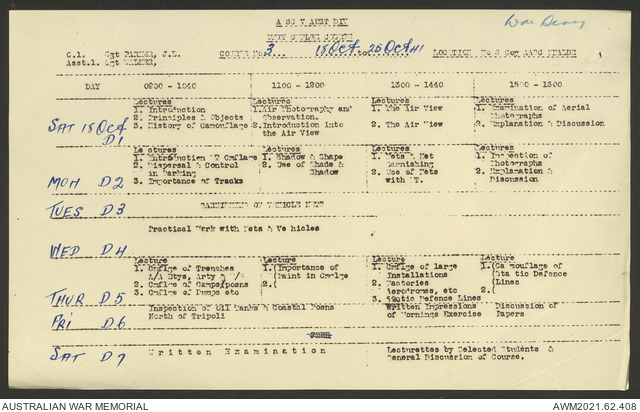 A SG 7 AUST DIV
War Diary
UNIT CMFLGE COURSE
C.1. Sgt PARKER, J.L. COURSE No. 3. 18 Oct to 25 Oct 41 LOCATION No 2 Coy AASC
Asst.1. Sgt
DAY 0900 - 1040 1100 - 1200 1300 - 1440 1500 - 1630
Lectures Lectures Lectures Lectures
1. Introduction 1. Air Photography and 1. The Air View 1. Examination of Aerial
2. Principles & Objects Observation. Photographs
3. History of Camouflage 2. Introduction into 2. The Air View 2. Explanation & Discussion
the Air View
SAT 18 Oct D1
Lectures Lectures Lectures Lectures
1. Introduction MT Cmflage 1. Shadow & Shape 1. Nets & Net 1. Inspection of
2. Dispersal & Control 2. Use of Shade & Garnishing Photographs
in Parking Shadow 2. Use of Nets 2. Explanation &
3. Importance of Tracks with MT. Discussion
MON D2
TUES D3
GARNISHING OF VEHICLE NETS
Practical Work with Nets & Vehicles
WED D4
Lecture Lecture Lecture Lecture
1. Cmflge of Trenches 1.(Importance of 1. Cmflge of large 1.(Camouflage of
A/A Btys, Arty (Paint in Cmflge Installations (Static Defence
2. Cmflge of Camps/posns 2.( 2. Factories (Lines
3. Cmflge of Dumps etc Aerodromes, etc 2.(
3. Static Defence Lines
THUR D5
Inspection of Oil Tanks & Coastal Posns Written Impressions Discussion of
North of Tripoli of Mornings Exercise Papers
FRI D6
SAT D7
Written Examination Lecturettes by Selected Students &
General Discussion of Course.
AUSTRALIAN WAR MEMORIAL AWM2021.62.408